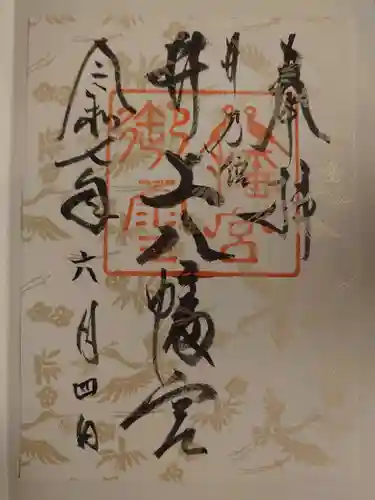 奉拝
井上八幡宮
令和七年六月四日
八幡宮
御霊